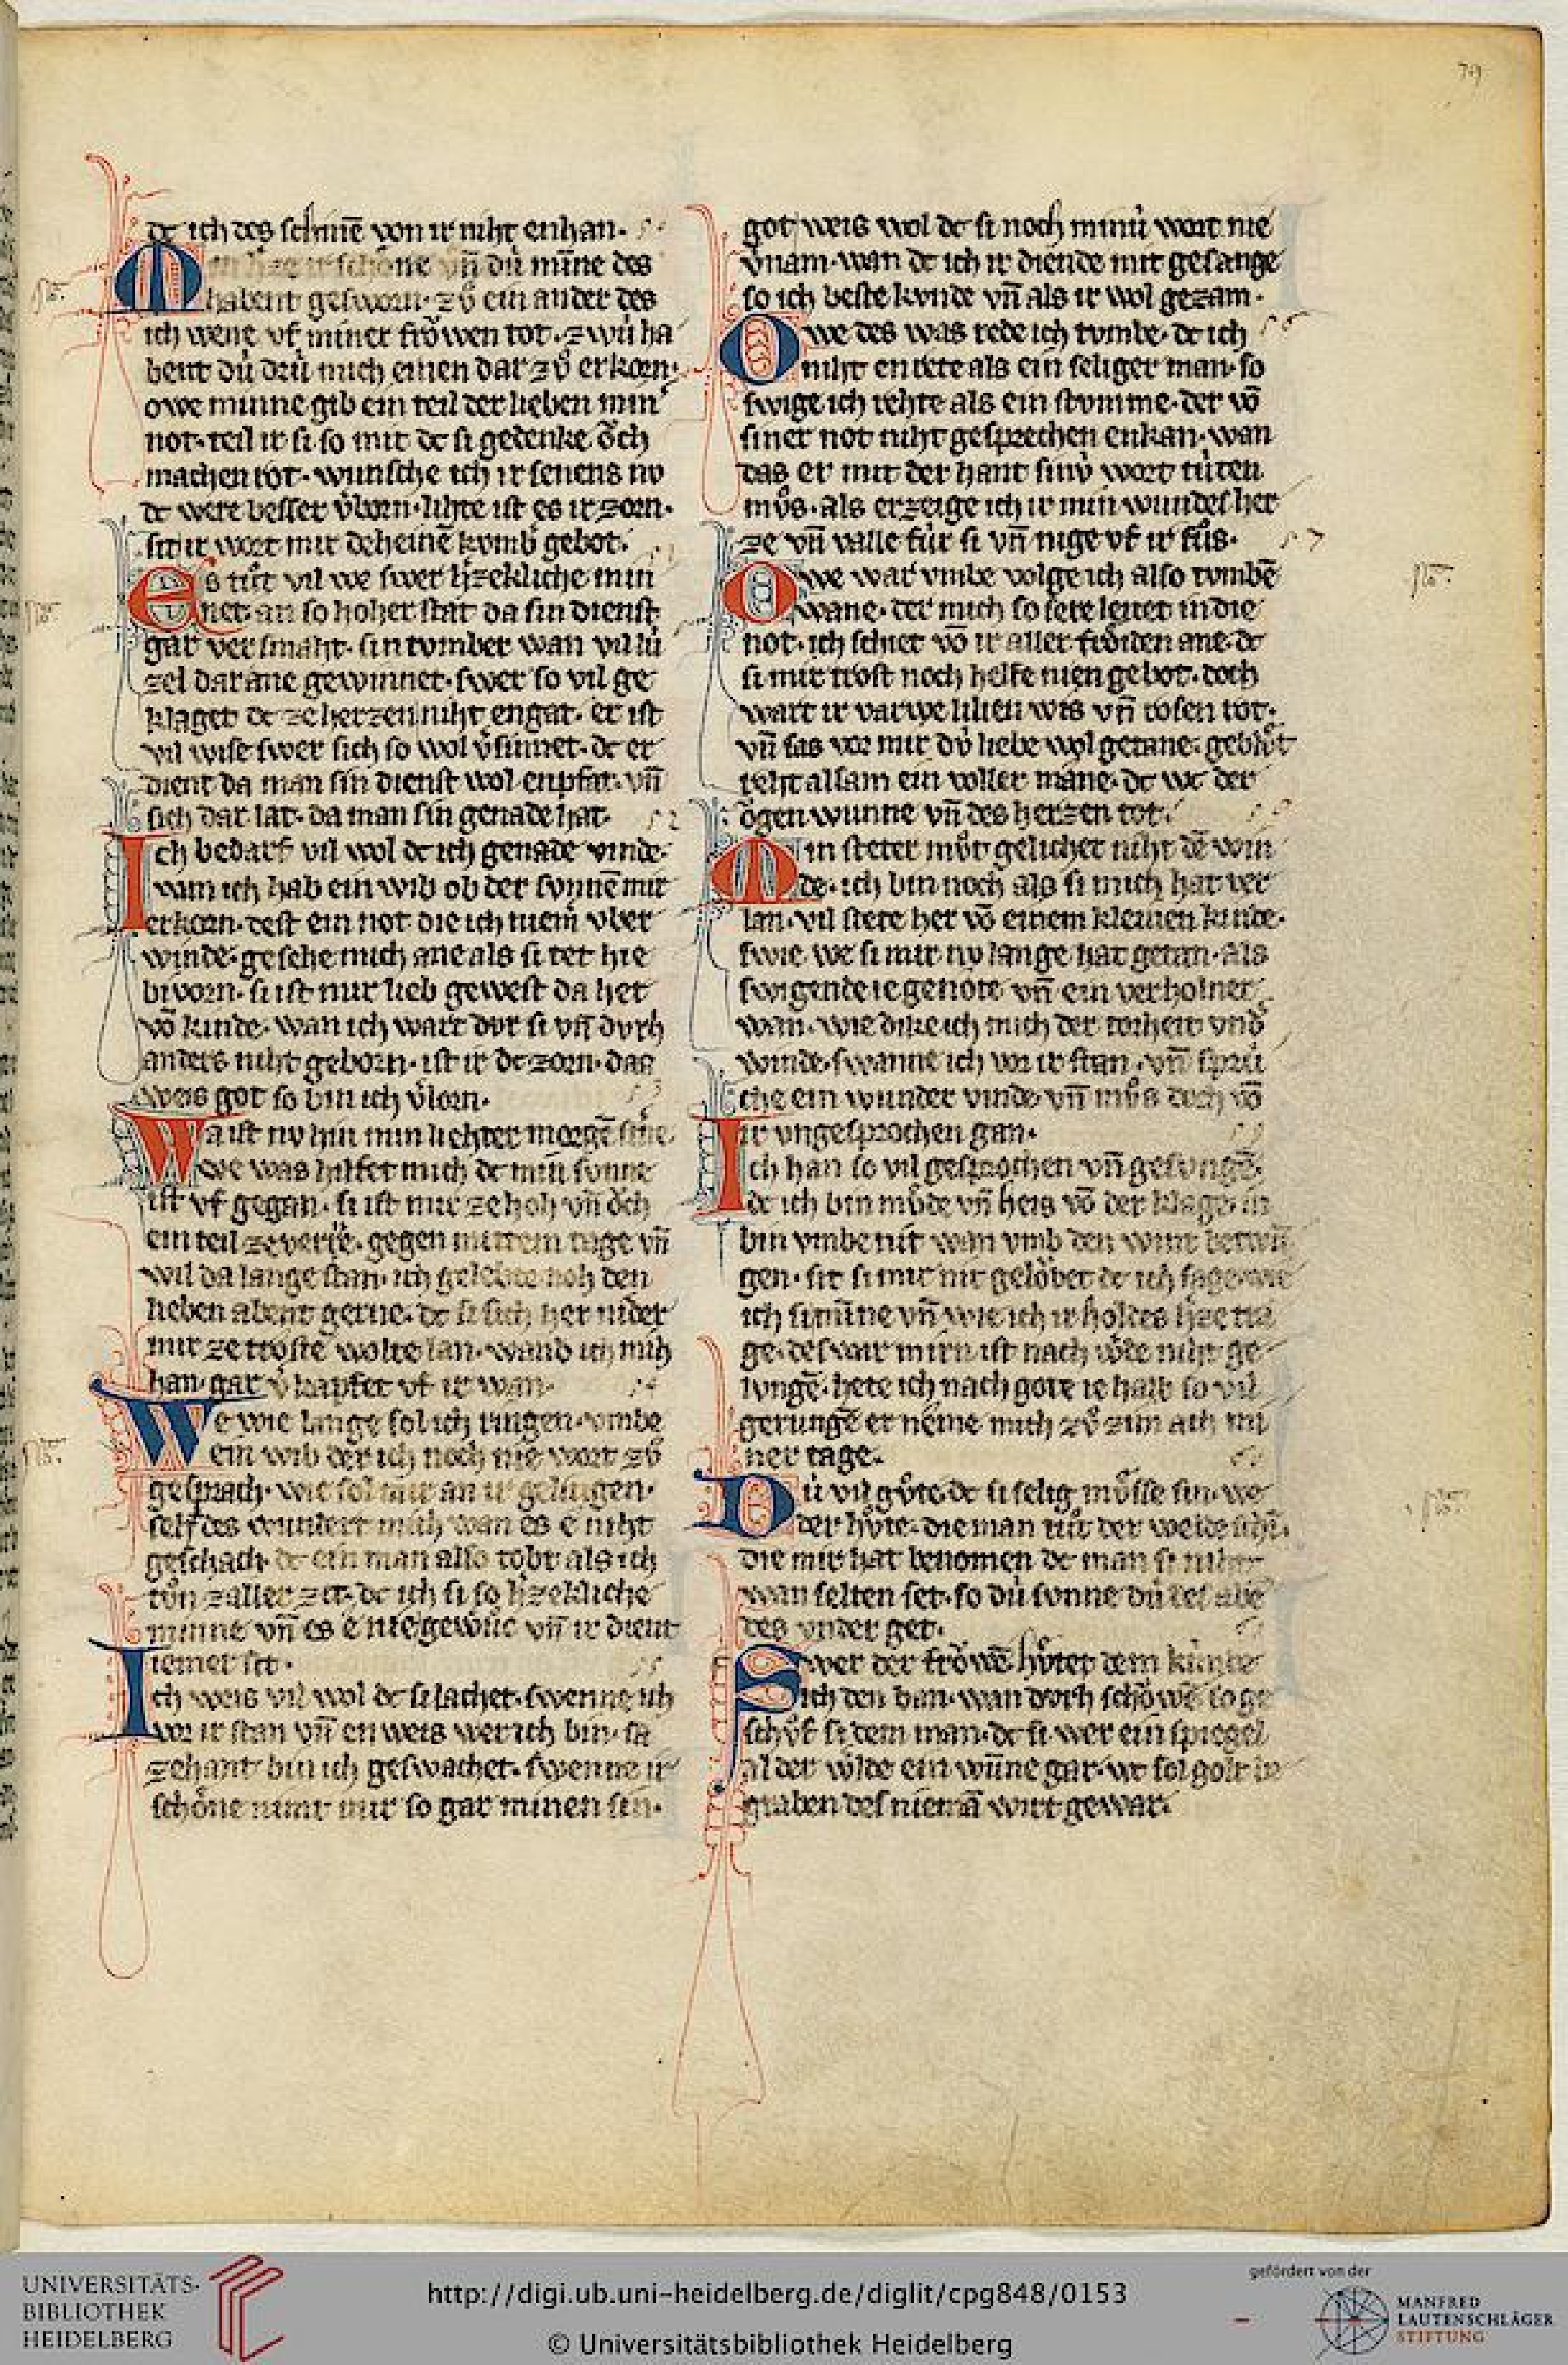 79
dc ich des schinē von ir niht enhan·
Min h̾ze ir schone vn̄ dú minne des
habent gesworn· zů ein ander des
ich wene vf miner frowen tot· zwú ha
bent dú drú mich einen dar zů erkorn·
owe minne gib ein teil der lieben min͛
not· teil ir si so mit dc si gedenke ŏch
machen rot· wunsche ich ir senens nv
dc were besser v̾born· lihte ist es ir zorn·
sit ir wort mir deheinē kvmb͛ gebot·
Es tůt vil we swer h̾zekliche min
net· an so hoher stat da sin dienst
gar versmaht· sin tvmber wan vil lú
zel dar ane gewinnet· swer so vil ge
klaget dc ze herzen niht engat· er ist
vil wise swer sich so wol v̾sinnet· dc er
dient da man sin dienst wol enpfat· vn̄
sich dar lat· da man sin genade hat·
Ich bedarf vil wol dc ich genade vinde·
wan ich hab ein wib ob der svnnē mir
erkorn· dest ein not die ich niem͛ vber
winde· gesehe mich ane als si tet hie
bivorn· si ist mir lieb gewest da her
vō kinde· wan ich wart dvr si vn̄ dvrh
anders niht geborn· ist ir dc zorn· das
weis got so bin ich v̾lorn·
Wa ist nv hin min liehter morgē st͛ne·
we was hilfet mich dc min svnne
ist vf gegan· si ist mir ze hoh vn̄ ŏch
ein teil ze verre· gegen mittem tage vn̄
wil da lange stan· ich gelebte noh den
lieben abent gerne· dc si sich her nider
mir ze troste wolte lan· wand ich mih
han gar v̾kapfet vf ir wan·
We wie lange sol ich ringen vmbe
ein wib der ich noch nie wort zů
gesprach· wie sol mir an ir gelingen·
seht des wundert mich wan es e niht
geschach· dc ein man also tobt als ich
tůn zaller zit· dc ich si so h̾zekliche
minne vn̄ es e nie gewůc vn̄ ir dient
iemer sit·
Ich weis vil wol dc si lachet· swenne ich
vor ir stan vn̄ en weis wer ich bin· sa
zehant bin ich geswachet· swenne ir
schŏne nimt mir so gar minen sin·
got weis wol dc si noch minú wort nie
v̾nam· wan dc ich ir diende mit gesange
so ich beste kvnde vn̄ als ir wol gezam·
Owe des was rede ich tvmbe· dc ich
niht en rete als ein seliger man· so
swige ich rehte als ein stvmme· der vō
siner not niht gesprechen enkan· wan
das er mit der hant sinv̇ wort túten
můs· als erzeige ich ir min wundes her
ze vn̄ valle fúr si vn̄ nige vf ir fůs·
Owe war vmbe volge ich also tvmbē
wane· der mich so sere leitet in die
not· ich schiet vō ir aller frŏiden ane· dc
si mir trost noch helfe nien gebot· doch
wart ir varwe lilien wis vn̄ rosen rot·
vn̄ sas vor mir dv̇ liebe wol getane· geblůt
reht allam ein voller mane· dc wc der
ŏgen wunne vn̄ des herzen tot·
Min steter můt gelichet niht dē win
de· ich bin noch als si mich hat ver
lan· vil stete her vō einem kleinen kinde·
swie we si mir nv lange hat getan· als
swigende ie genote vn̄ ein verholner
wan· wie dike ich mich der torheit vnd͛
winde· swanne ich vor ir stan· vn̄ sprú
che ein wunder vinde· vn̄ můs doch vō
ir vngesprochen gan·
Ich han so vil gesprochen vn̄ gesvngē·
dc ich bin můde vn̄ heis vō der klage· in
bin vmbe nit wan vmb den wint betwū
gen· sit si mir nit gelŏbet dc ich sage· wie
ich si mīne vn̄ wie ich ir holdes h̾ze tra
ge· deswar mirn ist nach w̾de niht ge
lvngē· hete ich nach gote ie halb so vil
gerungē er neme mich zů zim ach mi
ner tage·
Dú vil gůte dc si selig můsse sin· we
der hůte· die man tůt der welde schī·
die mir hat benomen dc man si niht
wan selten set· so dú svnne dú des abē
des vnder get·
Swer der frŏwē hůtet dem kúnde
ich den ban· wan dvrh schŏwē so ge
schůf si dem man· dc si wer ein spiegel
al der w̾lde ein wūne gar· wc sol golt be
graben des niemā wirt gewar·
UNIVERSITÄTS-
BIBLIOTHEK
HEIDELBERG
http://digi.ub.uni-heidelberg.de/diglit/cpg848/0153
© Universitätsbibliothek Heidelberg
gefördert von der
MANFRED
LAUTENSCHLÄGER
STIFTUNG